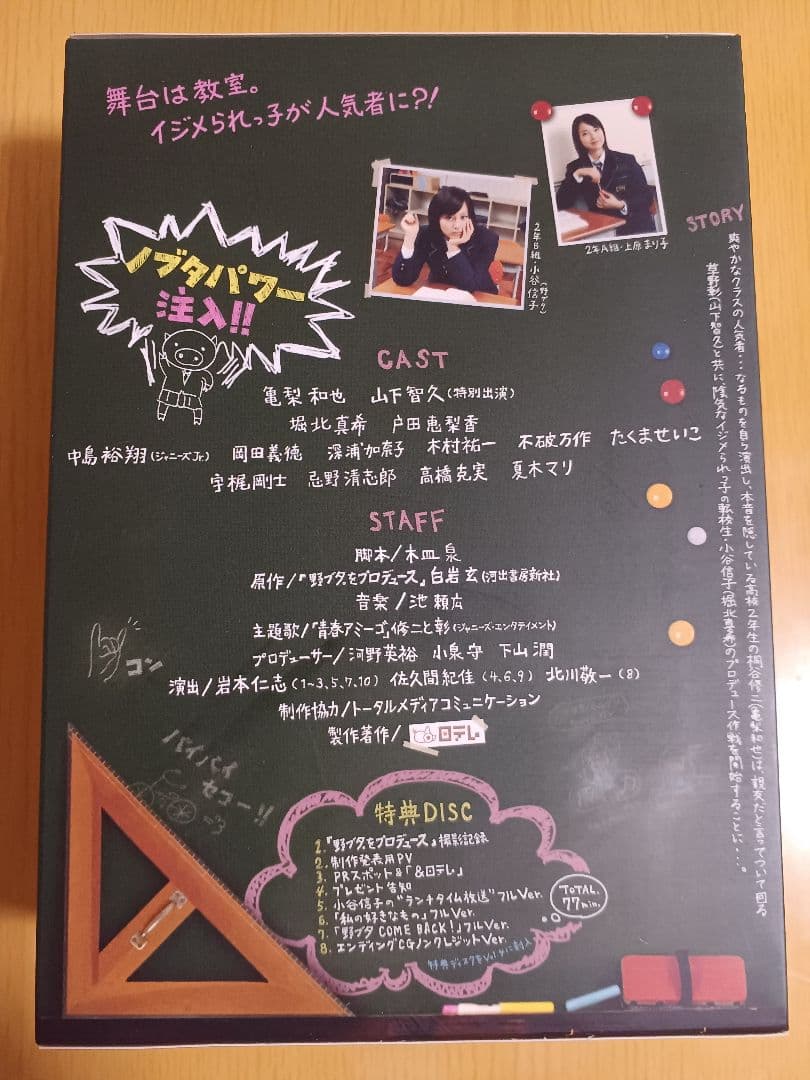 舞台は教室。
イジメられっ子が人気者に?!
ノブタパワー
注入!!
2年B組・小谷信子
(野ブタ)
2年A組・上原まり子
STORY
爽やかなクラスの人気者…なるものを自ら演出し、本音を隠している高校2年生の桐谷修二(亀梨和也)は、親友だと言ってついて回る
草野彰(山下智久)と共に、陰気なイジメられっ子の転校生・小谷信子(堀北真希)のプロデュース作戦を開始することに・・・。
CAST
亀梨和也 山下智久(特別出演)
堀北真希 戸田恵梨香
中島裕翔(ジャニーズJr.) 岡田義徳 深浦加奈子 木村祐一 不破万作 たくませいこ
宇梶剛士 忌野清志郎 高橋克実 夏木マリ
STAFF
脚本/木皿泉
原作/『野ブタ。をプロデュース』白岩玄(河出書房新社)
音楽/池頼広
主題歌/「青春アミーゴ」修二と彰(ジャニーズ・エンタテイメント)
プロデューサー/河野英裕 小泉守 下山潤
演出/岩本仁志(1~3,5,7,10) 佐久間紀佳(4,6,9) 北川敬一(8)
制作協力/トータルメディアコミュニケーション
製作著作/日テレ
コン
バイバイ
セコー!!
特典DISC
1.『野ブタ。をプロデュース』撮影記録
2.制作発表用PV
3.PRスポット&「&日テレ」
4.プレゼント告知
5.小谷信子の"ランチタイム放送"フルVer.
6.「私の好きなもの」フルVer.
7.「野ブタ COME BACK!」フルVer.
8.エンディングCGノンクレジットVer.
TOTAL.
77min.
特典ディスクをVol.4に封入